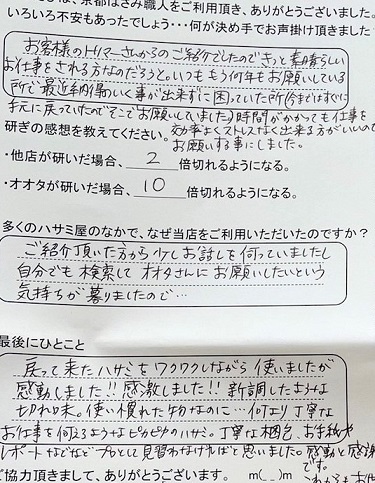 は、京都はさみ職人をご利用頂き、ありがとうございました。
いろいろ不安もあったでしょう・・・何が決め手でお声掛け頂きました
お客様のトリマーさんからのご紹介でしたのできっと素晴らしい
お仕事をされる方なのだろうと。いつももう何年もお願いしている
所で最近納得のいく事が出来ずに困っていた所(今まではすぐに
手元に戻っていたのでそこでお願いしていました)時間がかかっても仕事を
効率よくストレスなく出来る方がいいので
お願いする事にしました。
研ぎの感想を教えてください。
・他店が研いだ場合、 2 倍切れるようになる。
・オオタが研いだ場合、 10 倍切れるようになる。
多くのハサミ屋のなかで、なぜ当店をご利用いただいたのですか?
ご紹介頂いた方から少しお話しを伺っていましたし
自分でも検索してオオタさんにお願いしたいという
気持ちが募りましたので…
最後にひとこと
戻って来たハサミをワクワクしながら使いましたが
感動しました!!感激しました!!新調したような
切れ味。使い慣れた物なのに…何より丁寧な
お仕事を伺えるようなピカピカのハサミ。丁寧な梱包、お手紙や
レポートなどなどプロとして見習わなければと思いました。感動と感激
です。
ご協力頂きまして、ありがとうございます。 m(_ _)m
これからもお